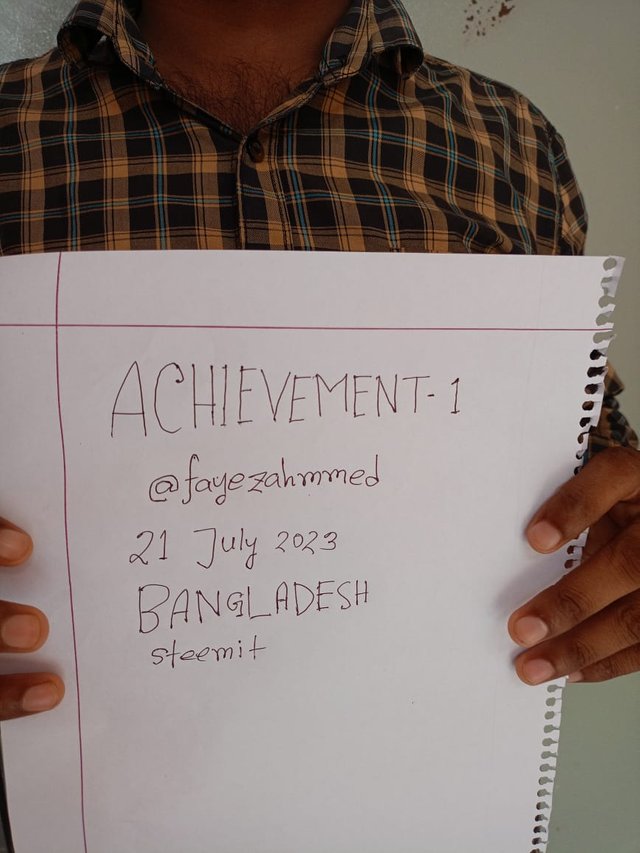 ACHIEVEMENT-1
@fayezahmmed
21 July 2023
BANGLADESH
steemit